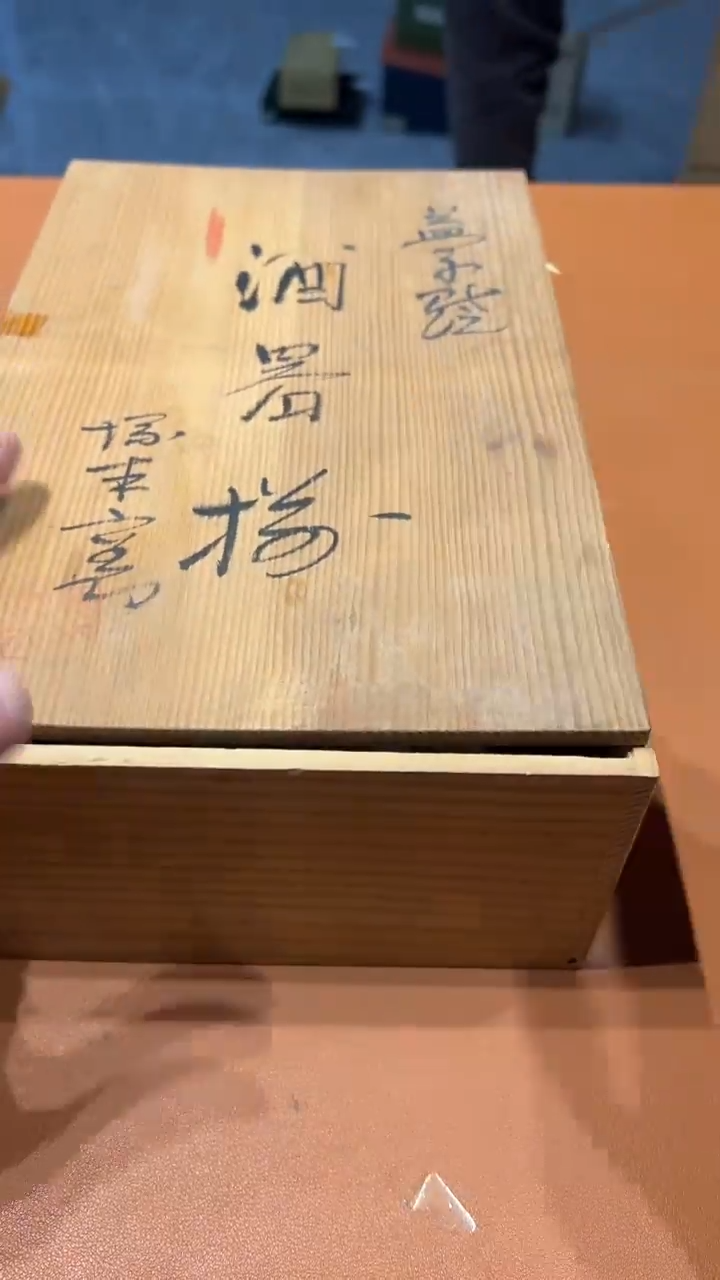 益子焼
酒器一揃
塚本窯